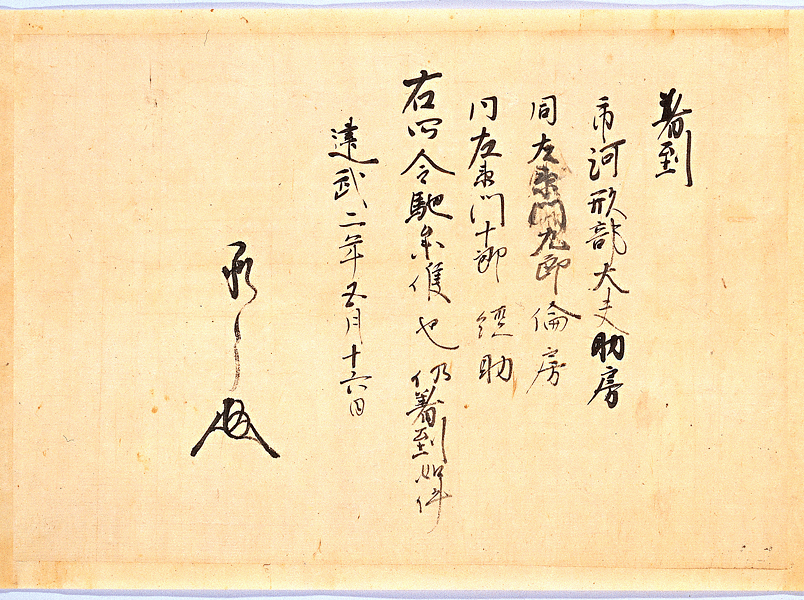 著到
市河刑部大夫助房
同左衛門九郎倫房
同左衛門十郎経助
右所令馳参候也仍著到如件
建武二年五月十六日
承了